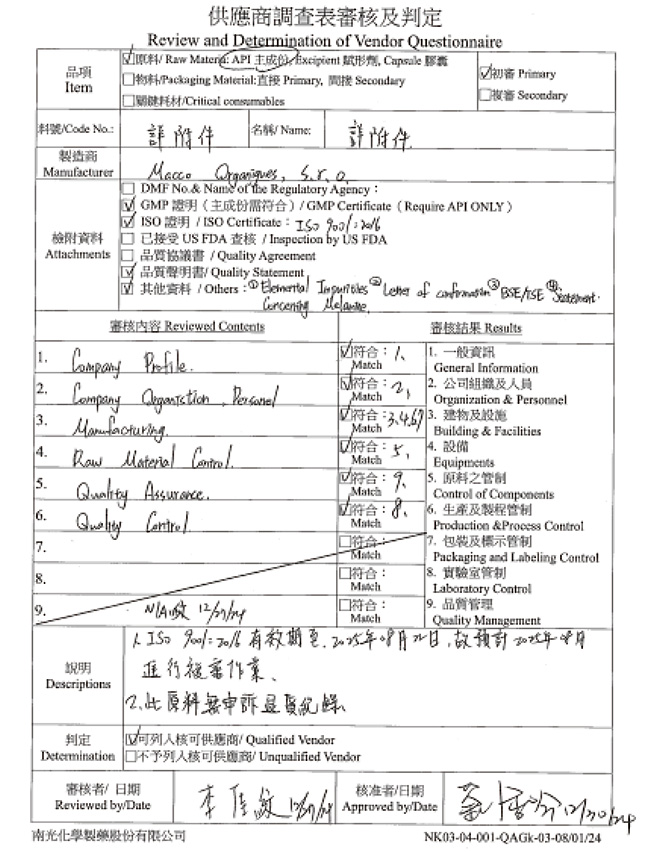 供應商調查表審核及判定
Review and Determination of Vendor Questionnaire
品項
Item
原料/ Raw Material: API 主成份, Excipient 賦形劑, Capsule 膠囊
物料/Packaging Material:直接 Primary, 間接 Secondary
關鍵耗材/Critical consumables
初審 Primary
複審 Secondary
料號/Code No.: 詳附件 名稱/ Name: 詳附件
製造商
Manufacturer
Macco Organiques, s.r.o.
檢附資料
Attachments
DMF No.& Name of the Regulatory Agency:
GMP 證明(主成份需符合)/ GMP Certificate(Require API ONLY)
ISO 證明 / ISO Certificate: ISO 9001:2016
已接受 US FDA 查核 / Inspection by US FDA
品質協議書 / Quality Agreement
品質聲明書/ Quality Statement
其他資料 / Others: ①Elemental Impurities ②Letter of confirmation ③BSE/TSE ④Statement
Concerning Melamine.
審核內容 Reviewed Contents
審核結果 Results
1. Company Profile.
符合: 1.
Match
1. 一般資訊
General Information
2. Company Organistion, Personel
符合: 2,
Match
2. 公司組織及人員
Organization & Personnel
3. Manufacturing.
符合: 3.4.6.7
Match
3. 建物及設施
Building & Facilities
4. Raw Material Control.
符合: 5.
Match
4. 設備
Equipments
5. Quality Assurance.
符合: 9.
Match
5. 原料之管制
Control of Components
6. Quality Control
符合: 8.
Match
6. 生產及製程管制
Production &Process Control
7.
符合:
Match
7. 包裝及標示管制
Packaging and Labeling Control
8.
符合:
Match
8. 實驗室管制
Laboratory Control
9. N/A 12/27/24
符合:
Match
9. 品質管理
Quality Management
說明
Descriptions
1. ISO 9001:2016 有效期至 2025年08月22日, 故預計 2025年08月
進行複審作業.
2.此原料無申訴退貨紀錄.
判定
Determination
可列入核可供應商/ Qualified Vendor
不予列入核可供應商/ Unqualified Vendor
審核者/ 日期
Reviewed by/Date
李佳 12/27/24
核准者/日期
Approved by/Date
12/30/24
南光化學製藥股份有限公司
NK03-04-001-QAGk-03-08/01/24